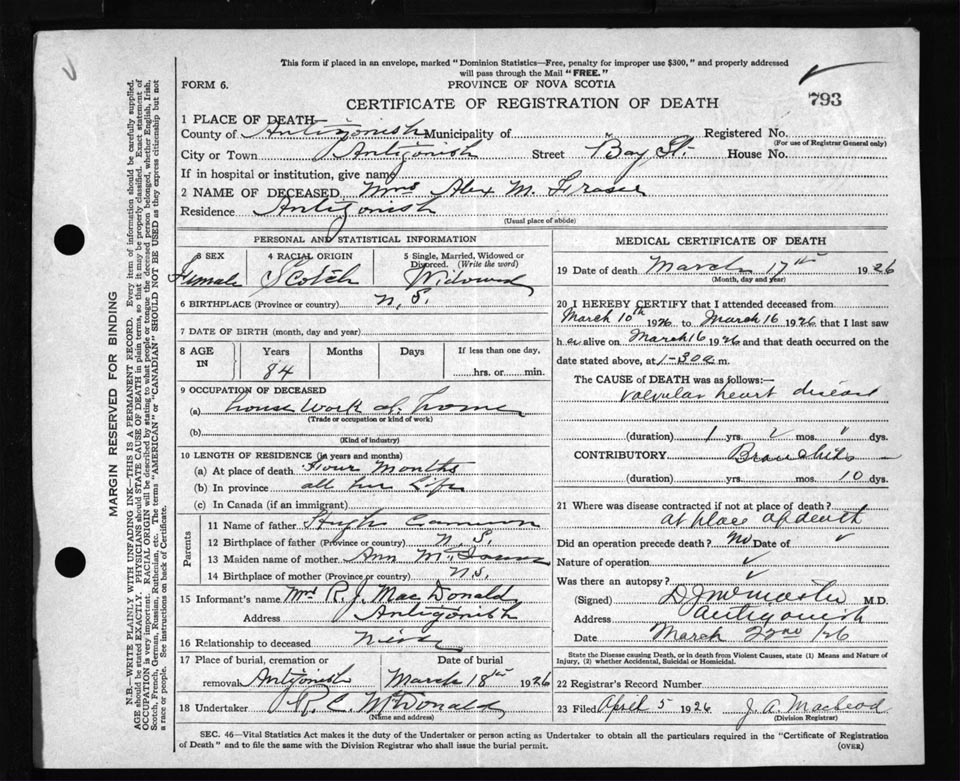 This form if placed in an envelope, marked "Dominion Statistics—Free, penalty for improper use $300," and properly addressed
will pass through the Mail "FREE."
FORM 6.
PROVINCE OF NOVA SCOTIA
CERTIFICATE OF REGISTRATION OF DEATH
793
1 PLACE OF DEATH—
County of Antigonish Municipality of Registered No.
(For use of Registrar General only)
City or Town Antigonish Street Bay St. House No.
If in hospital or institution, give name
2 NAME OF DECEASED Mrs Alex M. Fraser
Residence Antigonish
(Usual place of abode)
PERSONAL AND STATISTICAL INFORMATION
3 SEX 4 RACIAL ORIGIN 5 Single, Married, Widowed or Divorced. (Write the word)
Female Scotch Widowed
6 BIRTHPLACE (Province or country) N. S.
7 DATE OF BIRTH (month, day and year)
8 AGE IN Years Months Days If less than one day,
84 hrs. or min.
9 OCCUPATION OF DECEASED
(a) house work at home
(Trade or occupation or kind of work)
(b)
(Kind of industry)
10 LENGTH OF RESIDENCE (in years and months)
(a) At place of death Four Months
(b) In province all her Life
(c) In Canada (if an immigrant)
Parents
11 Name of father Hugh Cameron
12 Birthplace of father (Province or country) N. S.
13 Maiden name of mother Ann
14 Birthplace of mother (Province or country) N.S.
15 Informant's name Mrs R. J. MacDonald
Address Antigonish
16 Relationship to deceased niece
17 Place of burial, cremation or Date of burial
removal Antigonish March 18th 1926
18 Undertaker R. C. McDonald
(Name and address)
MEDICAL CERTIFICATE OF DEATH
19 Date of death March 17th 1926
(Month, day and year)
20 I HEREBY CERTIFY that I attended deceased from
March 10th 1926 to March 16 1926 that I last saw
h er alive on March 16 1926 and that death occurred on the
date stated above, at 1-30 a m.
The CAUSE of DEATH was as follows:—
valvular heart disease
(duration) 1 yrs. ✓ mos. ✓ dys.
CONTRIBUTORY Bronchitis
(duration) yrs. mos. 10 dys.
21 Where was disease contracted if not at place of death?
at place of death
Did an operation precede death? No Date of ✓
Nature of operation ✓
Was there an autopsy? ✓
(Signed) M.D.
Address Antigonish
Date March 22nd 1926
State the Disease causing Death, or in death from Violent Causes, state (1) Means and Nature of
Injury, (2) whether Accidental, Suicidal or Homicidal.
22 Registrar's Record Number
23 Filed April 5 1926 J. A. Macleod
(Division Registrar)
SEC. 46—Vital Statistics Act makes it the duty of the Undertaker or person acting as Undertaker to obtain all the particulars required in the "Certificate of Registration
of Death" and to file the same with the Division Registrar who shall issue the burial permit.
(OVER)
MARGIN RESERVED FOR BINDING
N.B.—WRITE PLAINLY, WITH UNFADING INK—THIS IS A PERMANENT RECORD. Every item of information should be carefully supplied.
AGE should be stated EXACTLY. PHYSICIANS should STATE CAUSE OF DEATH in plain terms, so that it may be properly classified. Exact statement of
OCCUPATION is very important. RACIAL ORIGIN will be described by stating to what people or tongue the deceased person belonged, whether English, Irish,
Scotch, French, German, Russian, Ruthenian, etc. The terms "AMERICAN" or "CANADIAN" SHOULD NOT BE USED as they express citizenship but not
a race or people. See instructions on back of Certificate.